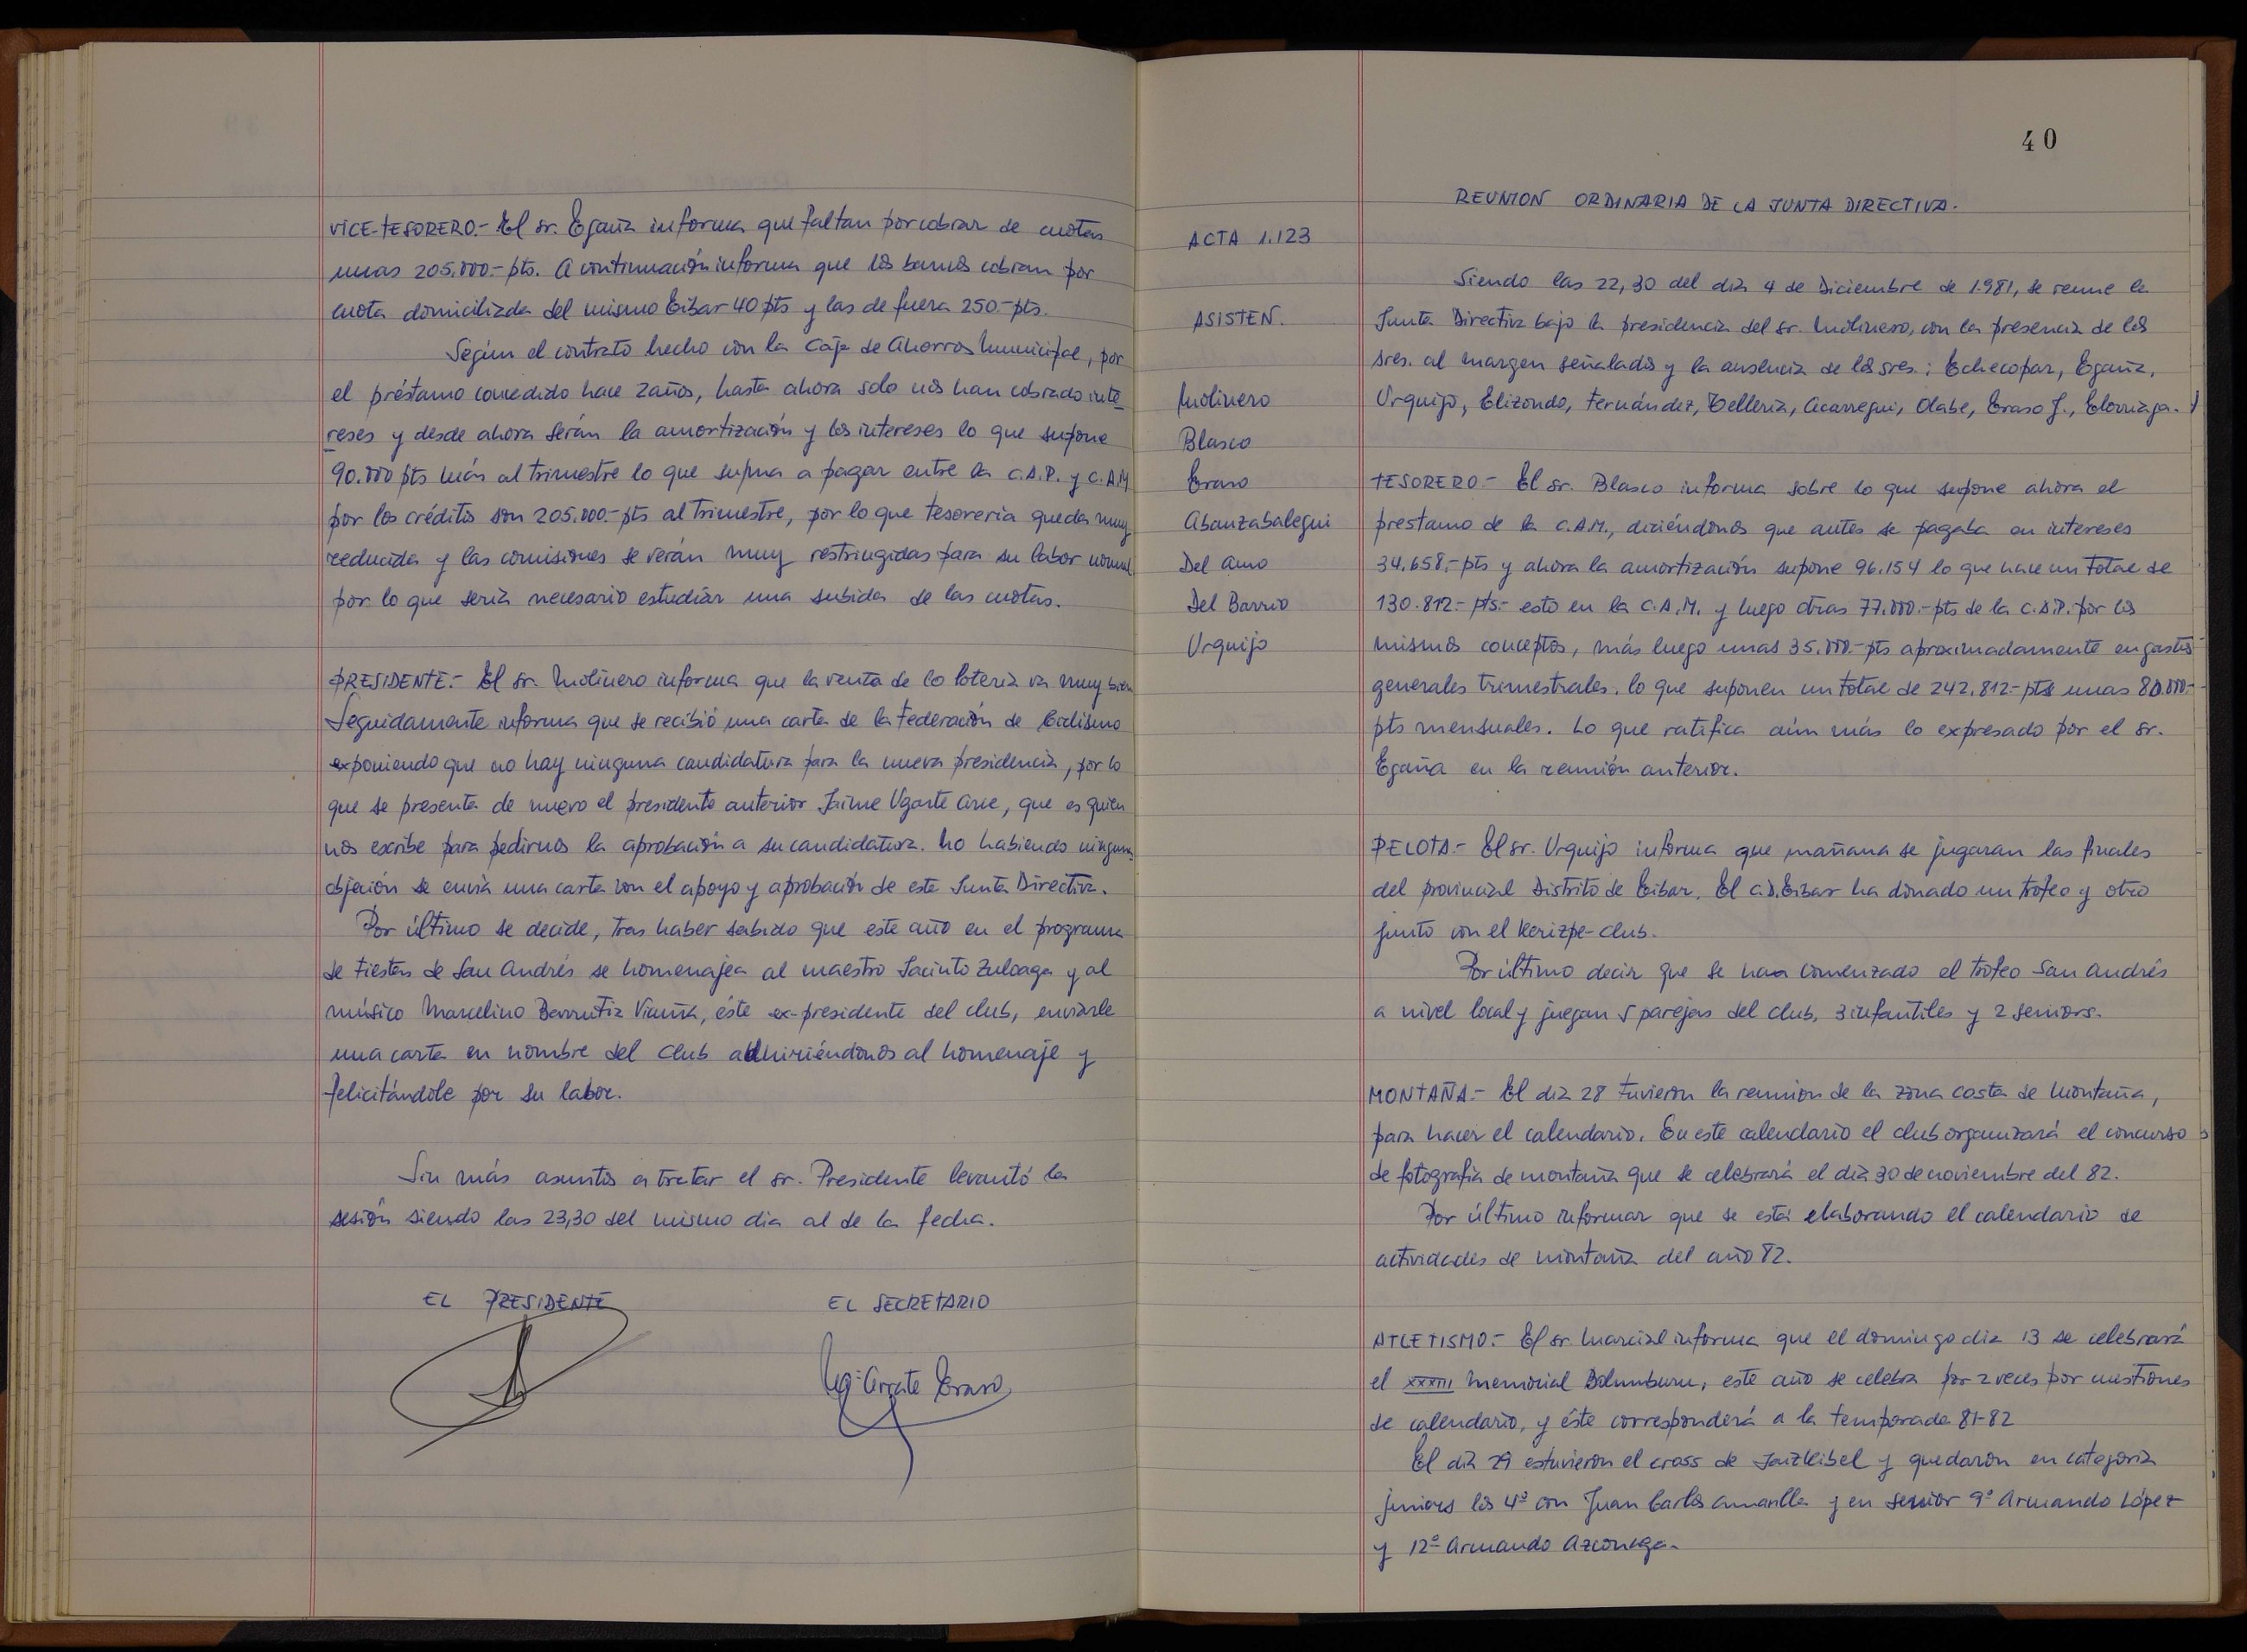 VICE-TESORERO.- El sr. Egaña informa que faltan por cobrar de cuotas
unas 205.000.- pts. A continuación informa que los bancos cobran por
cuota domiciliada del mismo Eibar 40 pts y las de fuera 250.- pts.
Según el contrato hecho con la Caja de Ahorros Municipal, por
el préstamo concedido hace 2 años, hasta ahora solo nos han cobrado inte-
reses y desde ahora serán la amortización y los intereses lo que supone
90.000 pts más al trimestre lo que suma a pagar entre la C.A.P. y C.A.M
por los créditos son 205.000.- pts al trimestre, por lo que tesoreria queda muy
reducida y las comisiones se verán muy restringidas para su labor normal
por lo que seria necesario estudiar una subida de las cuotas.
PRESIDENTE.- El sr. Molinero informa que la venta de lo loteria va muy bien
Seguidamente informa que se recibió una carta de la Federación de Ciclismo
exponiendo que no hay ninguna candidatura para la nueva presidencia, por lo
que se presenta de nuevo el presidente anterior Jaime Ugarte Arce, que es quien
nos escribe para pedirnos la aprobación a su candidatura. No habiendo ninguna
objeción se envia una carta con el apoyo y aprobación de esta Junta Directiva.
Por último se decide, tras haber sabido que este año en el programa
de Fiestas de San Andrés se homenajea al maestro Jacinto Zuloaga y al
músico Marcelino Barrutia Vicuña, éste ex-presidente del club, enviarle
una carta en nombre del Club adhiriéndonos al homenaje y
felicitándole por su labor.
Sin más asuntos a tratar el sr. Presidente levantó la
sesión siendo las 23,30 del mismo dia al de la fecha.
EL PRESIDENTE EL SECRETARIO
Mª Arrate Eraso
40
REUNION ORDINARIA DE LA JUNTA DIRECTIVA.
ACTA 1.123
Siendo las 22,30 del dia 4 de Diciembre de 1.981, se reune la
ASISTEN.
Junta Directiva bajo la presidencia del sr. Molinero, con la presencia de los
sres. al margen señalados y la ausencia de los sres.: Echecopar, Egaña,
Molinero
Urquijo, Elizondo, Fernández, Telleria, Acarregui, Olabe, Eraso J., Elorriaga.
Blasco
Eraso
TESORERO.- El sr. Blasco informa sobre lo que supone ahora el
Abanzabalegui
prestamo de la C.A.M., diciéndonos que antes se pagaba en intereses
Del Amo
34.658.- pts y ahora la amortización supone 96.154 lo que hace un total de
Del Barrio
130.812.- pts.- esto en la C.A.M. y luego otras 77.000.- pts de la C.A.P. por los
Urquijo
mismos conceptos, más luego unas 35.000.- pts aproximadamente en gastos
generales trimestrales. lo que suponen un total de 242.812.- pts unas 80.000.-
pts mensuales. Lo que ratifica aún más lo expresado por el sr.
Egaña en la reunión anterior.
PELOTA.- El sr. Urquijo informa que mañana se jugaran las finales
del provincial Distrito de Eibar. El C.D. Eibar ha donado un trofeo y otro
junto con el Kerizpe-Club.
Por último decir que se han comenzado el trofeo San Andrés
a nivel local y juegan 5 parejas del club, 3 infantiles y 2 seniors.
MONTAÑA.- El dia 28 tuvieron la reunion de la zona costa de Montaña,
para hacer el calendario. En este calendario el club organizará el concurso
de fotografia de montaña que se celebrará el dia 30 de noviembre del 82.
Por último informar que se está elaborando el calendario de
actividades de montaña del año 82.
ATLETISMO.- El sr. Marcial informa que el domingo dia 13 se celebrará
el XXXIII Memorial Bolumburu, este año se celebra por 2 veces por cuestiones
de calendario, y éste corresponderá a la temporada 81-82
El dia 29 estuvieron el cross de Jaizkibel y quedaron en categoria
juniors los 4º con Juan Carlos Amarilla y en senior 9º Armando López
y 12º Armando Azconaga.